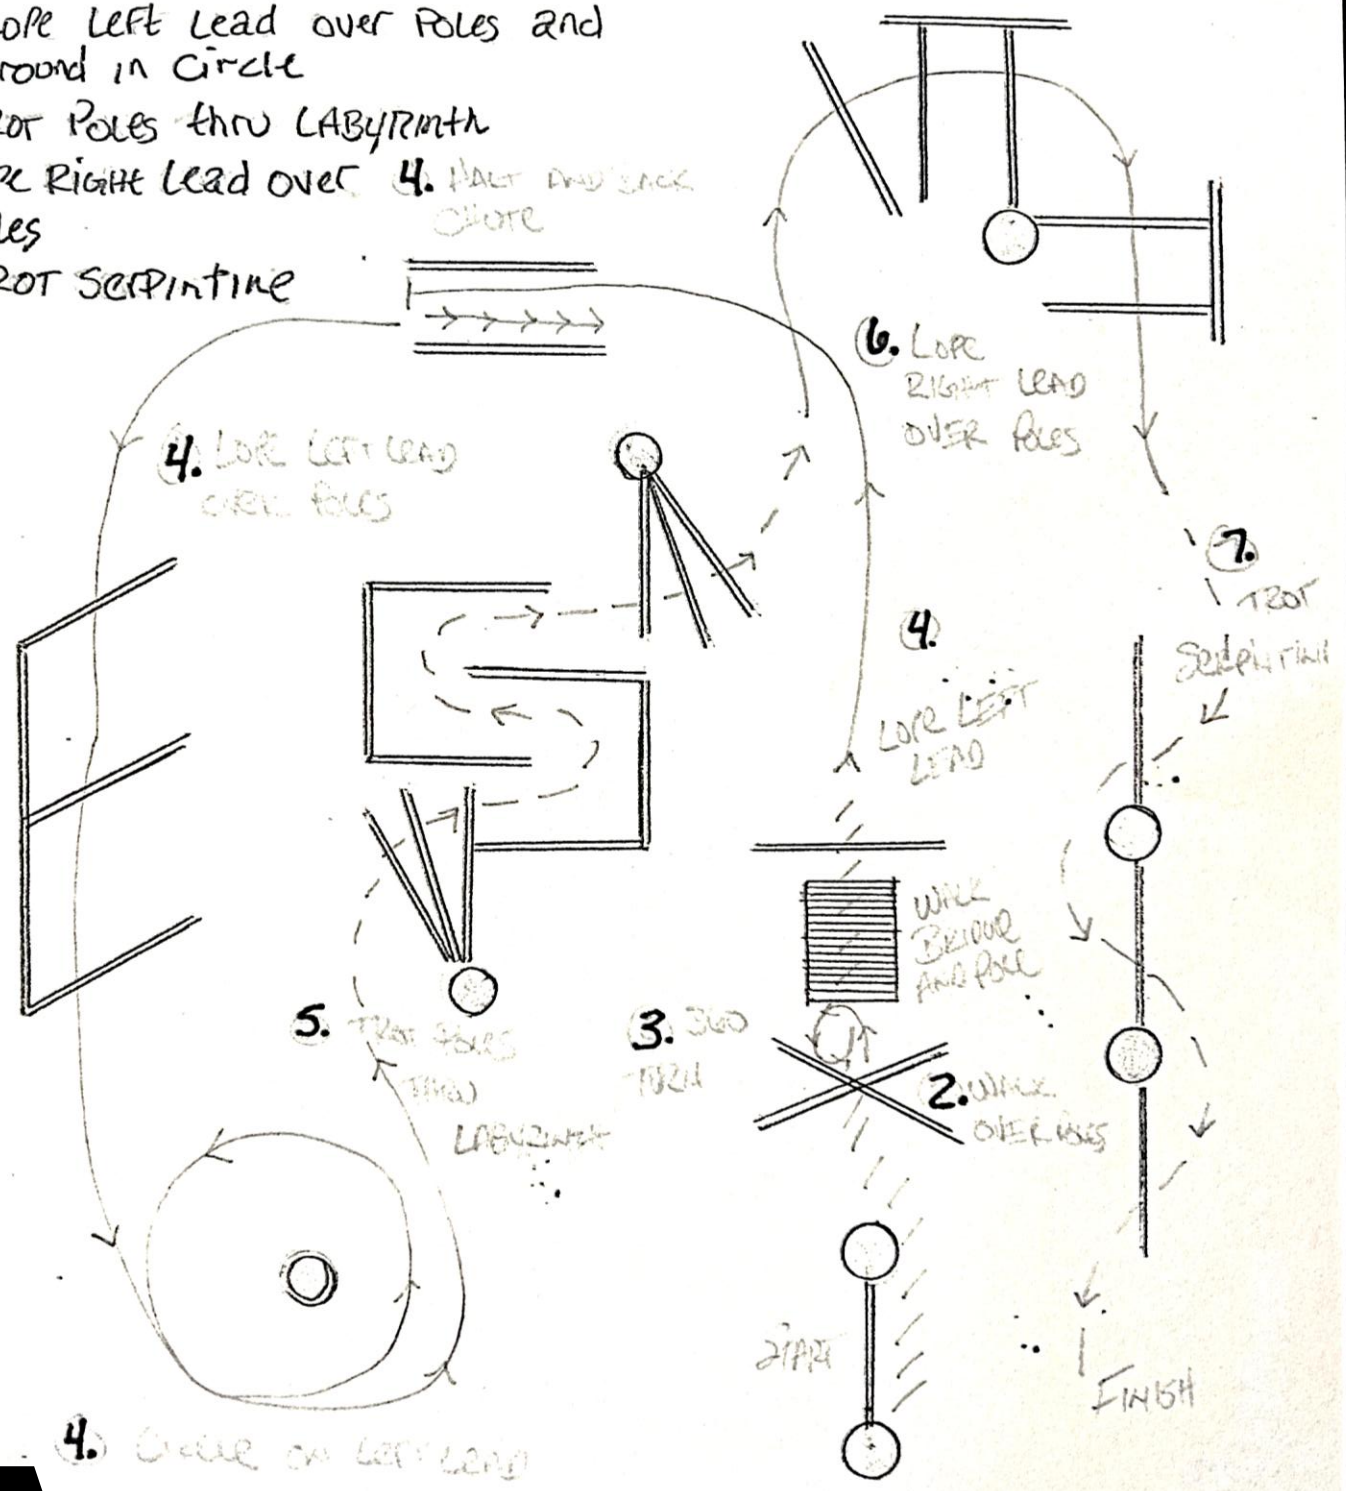 ope Left Lead over Poles and
round in Circle
rot Poles thru LAByRinth
pe Right Lead over
les
rot Serpintine
4. HALT AND BACK
CHUTE
4. LOPE LEFT LEAD
OVER POLES
6. LOPE
RIGHT LEAD
OVER POLES
7.
TROT
SERPINTINE
4.
LOPE LEFT
LEAD
WALK
BRIDGE
AND POLE
5. TROT POLES
THRU
LABYRINTH
3. 360
TURN
2. WALK
OVER POLES
START
FINISH
4. CIRCLE ON LEFT LEAD